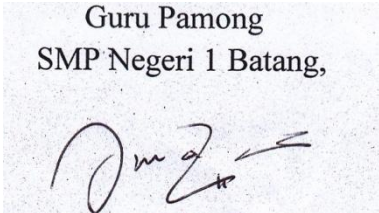 Guru Pamong
SMP Negeri 1 Batang,